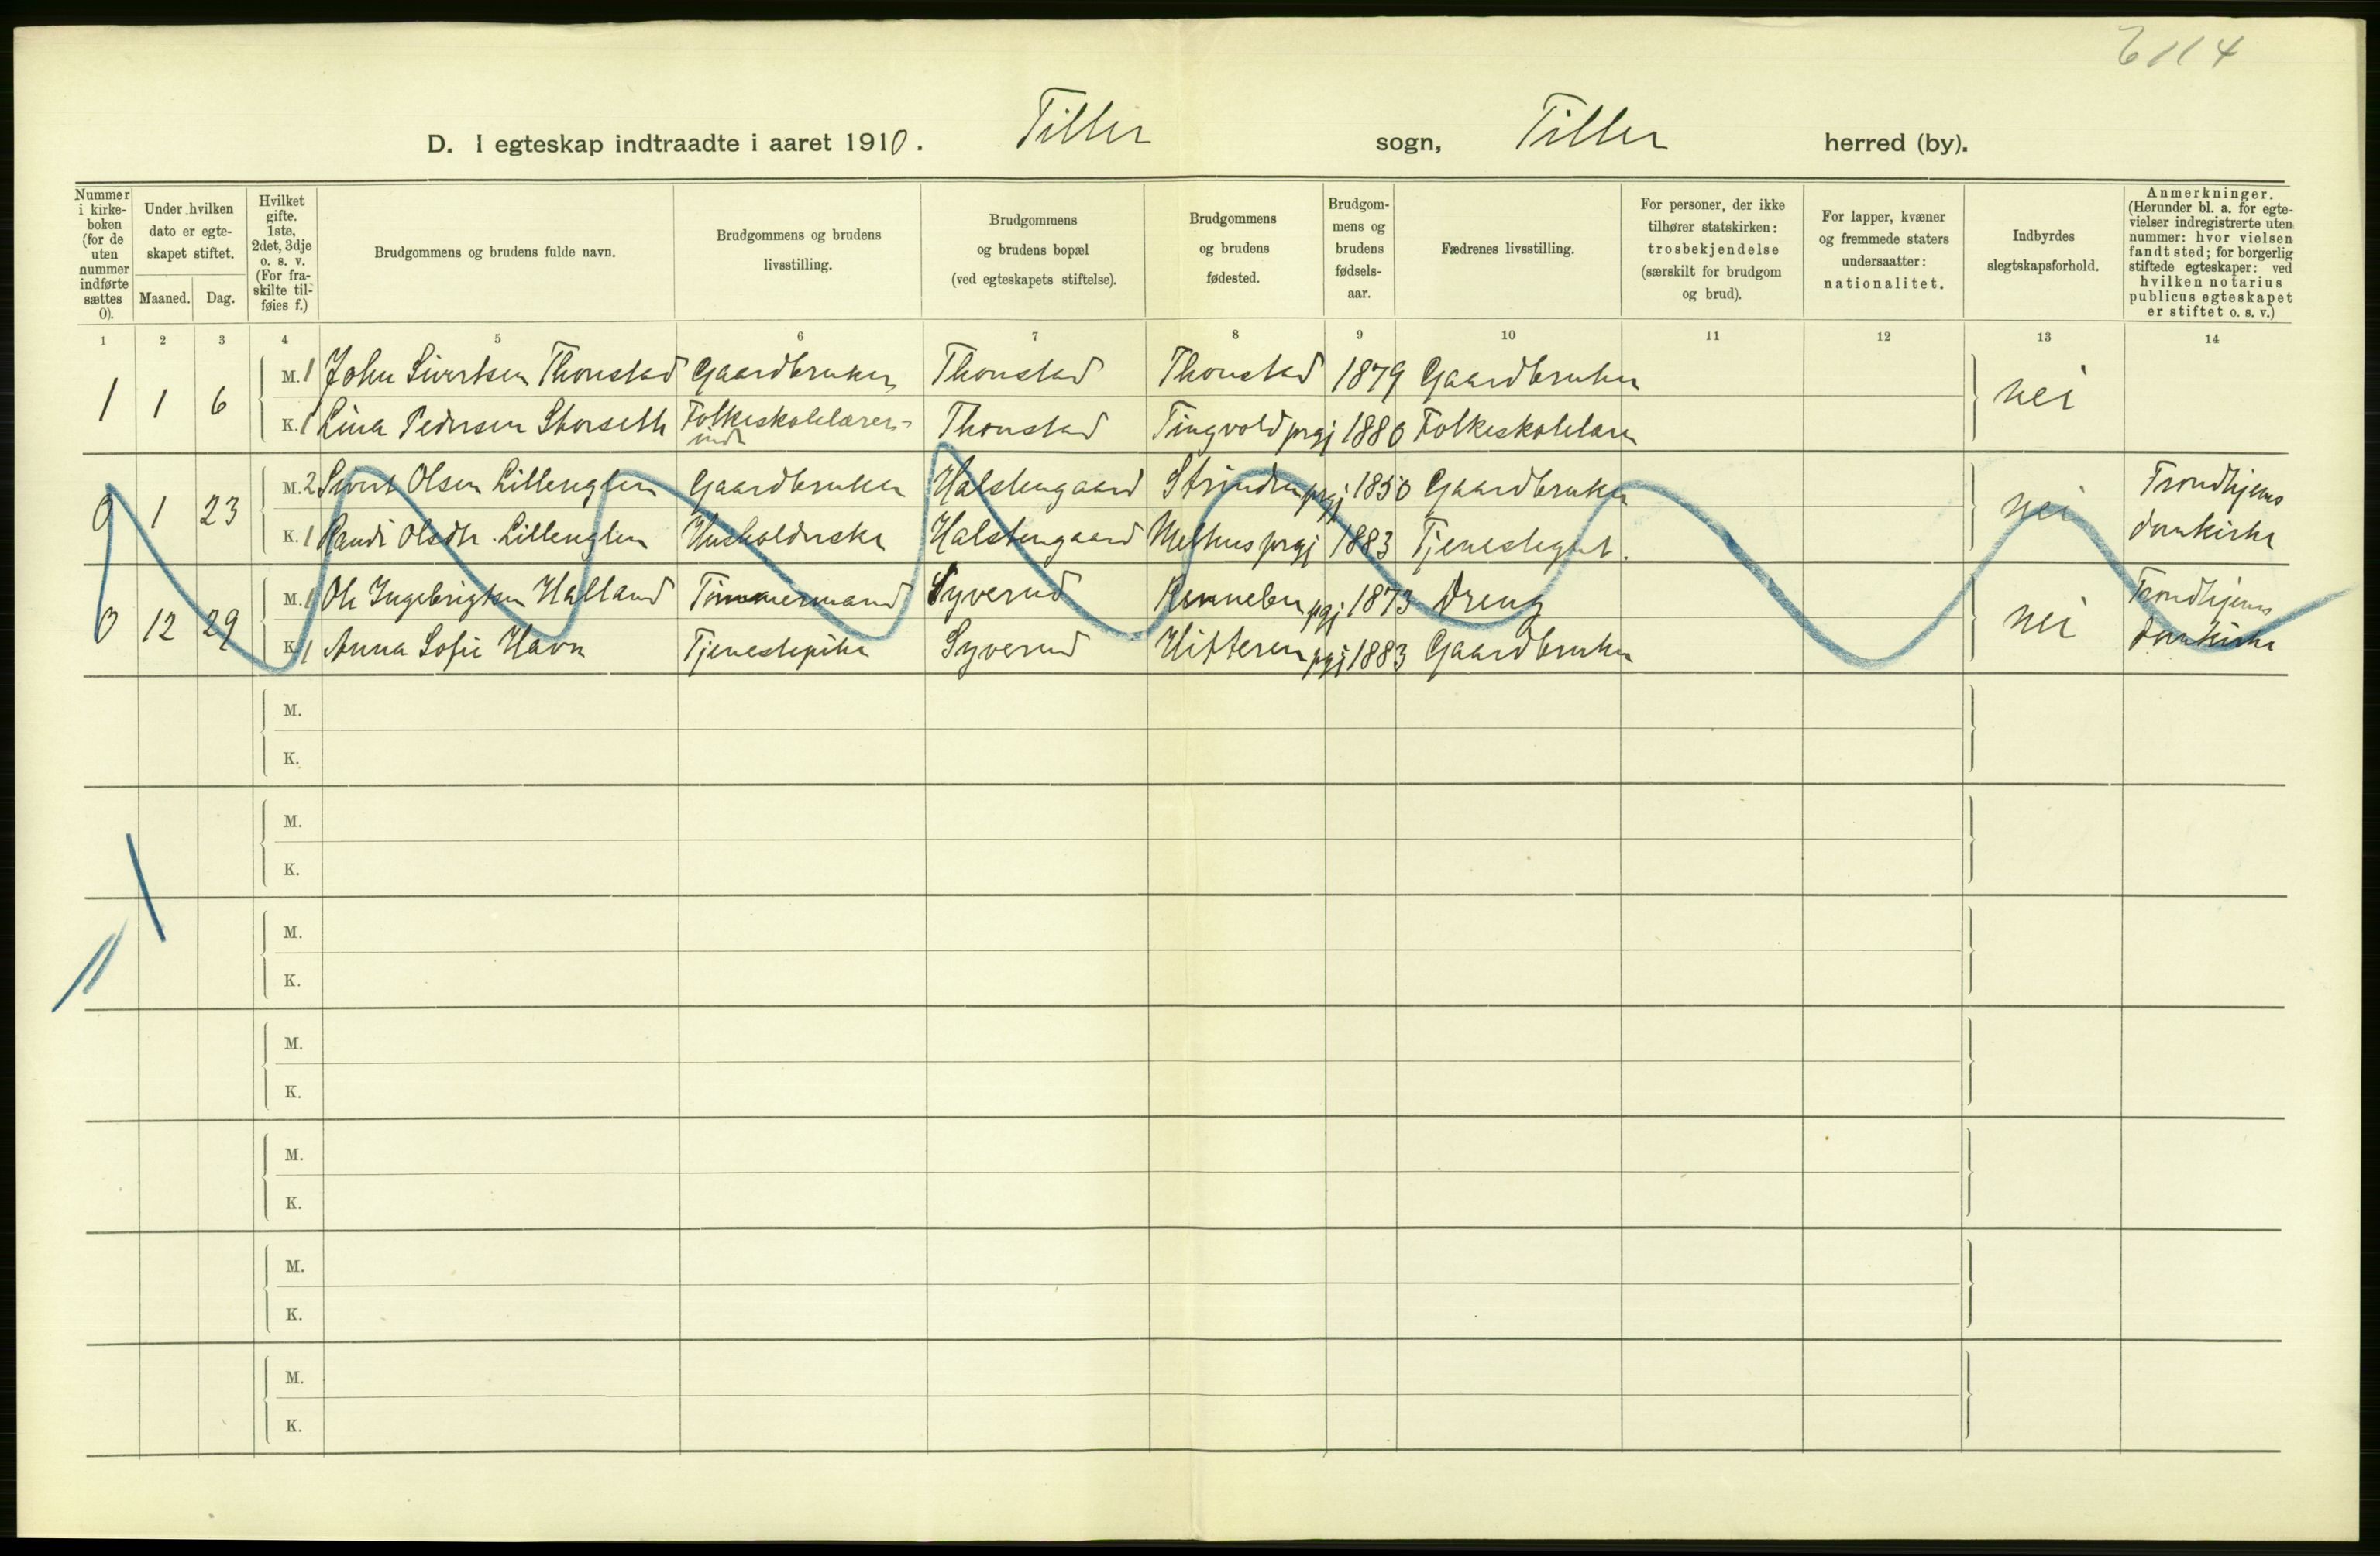 6114
D. I egteskap indtraadte i aaret 1910. Tiller sogn, Tiller herred (by).
Nummer i kirkeboken (for de uten nummer indførte sættes 0).
Under hvilken dato er egteskapet stiftet.
Maaned. Dag.
Hvilket gifte. 1ste, 2det, 3dje o. s. v. (For fraskilte tilføies f.)
Brudgommens og brudens fulde navn.
Brudgommens og brudens livsstilling.
Brudgommens og brudens bopæl (ved egteskapets stiftelse).
Brudgommens og brudens fødested.
Brudgommens og brudens fødselsaar.
Fædrenes livsstilling.
For personer, der ikke tilhører statskirken: trosbekjendelse (særskilt for brudgom og brud).
For lapper, kvæner og fremmede staters undersaatter: nationalitet.
Indbyrdes slegtskapsforhold.
Anmerkninger. (Herunder bl. a. for egtevielser indregistrerte uten nummer: hvor vielsen fandt sted; for borgerlig stiftede egteskaper: ved hvilken notarius publicus egteskapet er stiftet o. s. v.)
1 2 3 4 5 6 7 8 9 10 11 12 13 14
1 1 6 M. 1 John Sivertsen Thonstad Gaardbruker Thonstad Thonstad 1879 Gaardbruker nei
K. 1 Lina Pedersen Storseth Folkeskolelærerinde Thonstad Tingvold prgj 1880 Folkeskolelærer
0 1 23 M. 2 Sivert Olsen Lillenglen Gaardbruker Halstengaard Strinden prgj 1850 Gaardbruker nei Trondhjems
K. 1 Randi Olsdtr. Lillenglen Husholderske Halstengaard Melhus prgj 1883 Tjenestegut. domkirke
0 12 29 M. 1 Ole Ingebrigtsen Halland Tømmermand Syverud Rennebu pgj 1873 Dreng nei Trondhjems
K. 1 Anna Sofie Havn Tjenestepike Syverud Hitteren pgj 1883 Gaardbruker domkirke
M.
K.
M.
K.
M.
K.
M.
K.
M.
K.
M.
K.
M.
K.